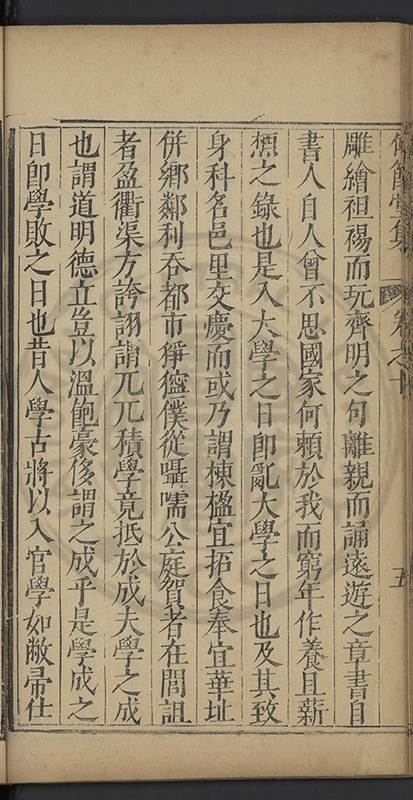 雕繪袒裼而玩齊明之句離親而誦遠遊之章書自
書人自人曾不思國家何賴於我而窮年作養且薪
槱之錄也是入大學之日卽亂大學之日也及其致
身科名邑里交慶而或乃謂棟楹宜拓食奉宜華址
併鄉鄰利吞都市猙獰僕從囁嚅公庭賀者在閭詛
者盈衢渠方誇詡謂兀兀積學竟抵於成夫學之成
也謂道明德立豈以溫飽豪侈謂之成乎是學成之
日卽學敗之日也昔人學古將以入官學如敝帚仕